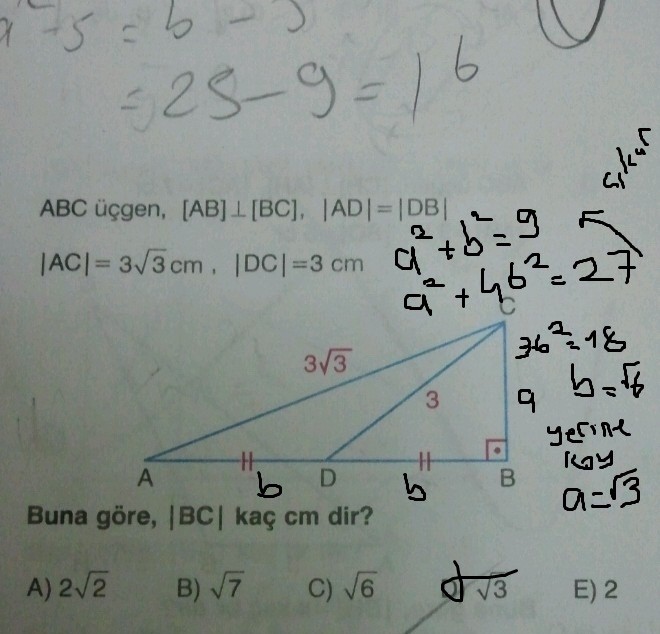 a² - 5 = b - 5
= 25 - 9 = 16
ABC üçgen, [AB]⊥[BC], |AD|=|DB|
|AC|= 3√3 cm , |DC|=3 cm
a² + b² = 9
a² + 4b² = 27
C
3√3
3b² = 18
3
a
b = √6
yerine
koy
a = √3
A
D
B
b
b
Buna göre, |BC| kaç cm dir?
A) 2√2 B) √7 C) √6 D) √3 E) 2